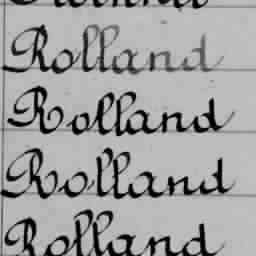 Rolland
Rolland
Rolland
Rolland